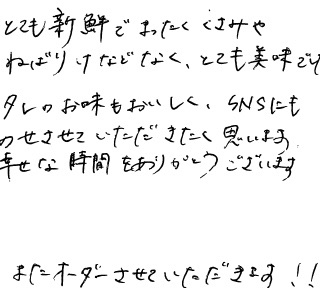 とても新鮮でまったくくさみや
ねばりけなどなく、とても美味で
タレのお味もおいしく、SNSにも
のせさせていただきたく思います
幸せな時間をありがとうございます
またオーダーさせていただきます!!